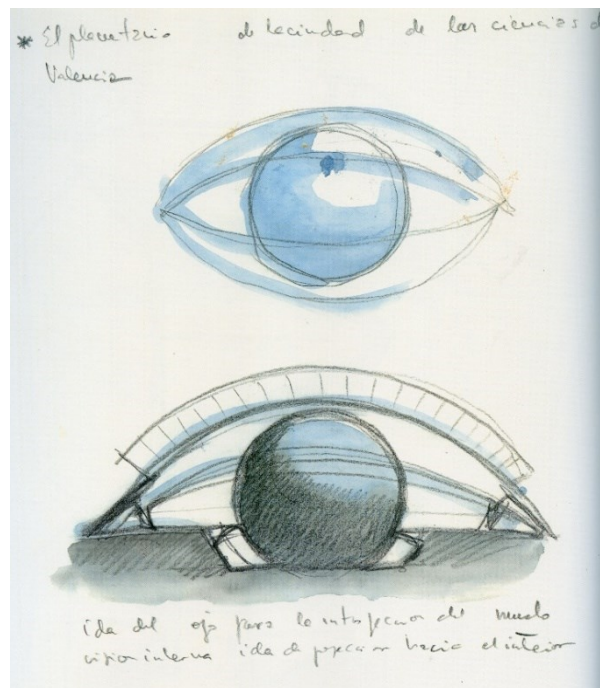 * El planetario de la ciudad de las ciencias d
Valencia
idea del ojo para la introspeccion del mundo
vision interna idea de proyeccion hacia el interior